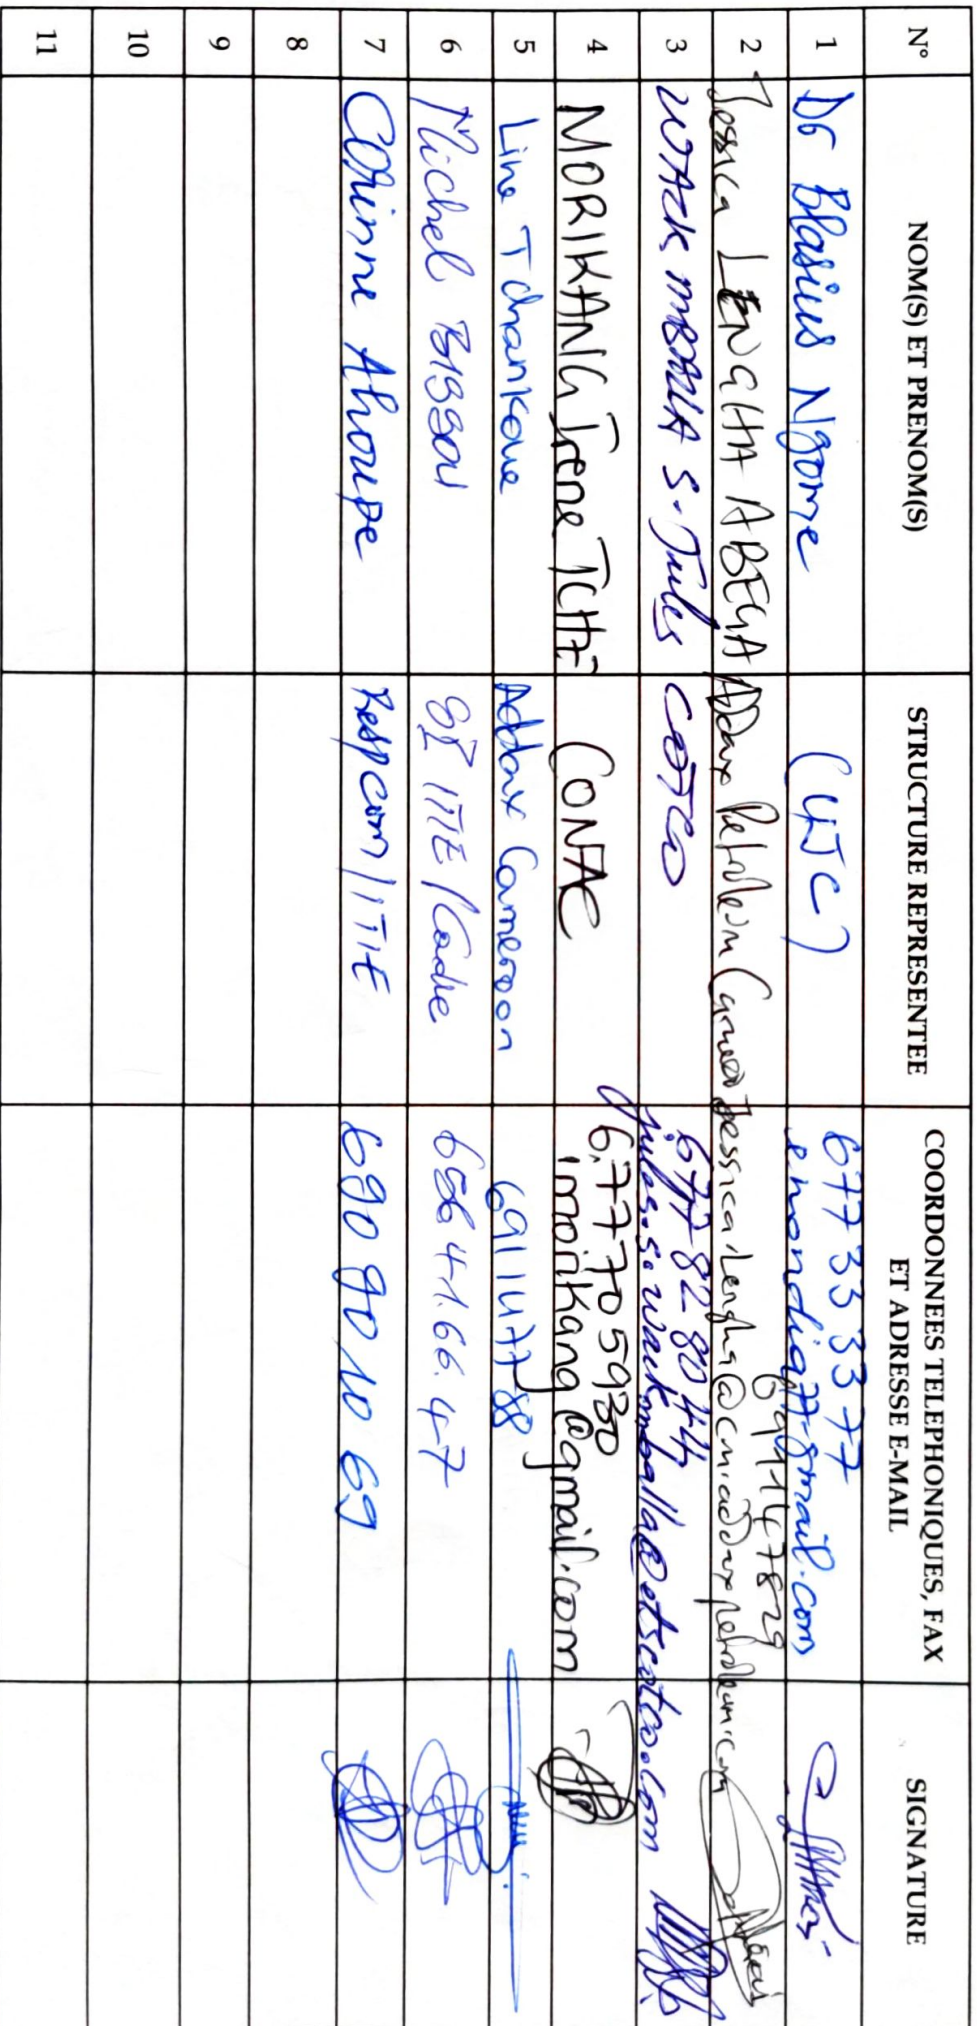 N° NOM(S) ET PRENOM(S) STRUCTURE REPRESENTEE COORDONNEES TELEPHONIQUES, FAX ET ADRESSE E-MAIL SIGNATURE
1 Dr Blasius Ngome (UJC) 677 33 33 77
2 Jessica LENGHA ABEGA Addax Petroleum 699147829
3 S. Jules COTCO 677 82 80 44
jules.s.wackmballa@otscotco.com
4 MORIKANG Irene TCHE CONAC 677705930
imorikang@gmail.com
5 Line Tchankoue Addax Cameroon 691147788
6 Michel BISSOU ITIE / 656 41.66.47
7 Corinne Ahoupe Resp com / ITIE 690 90 10 69
8
9
10
11